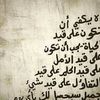 لا يكفي أن
تكون على قيد
الحياة يجب أن تكون
على قيد الأمل
على قيد الحلم على قيد
التفاؤل على قيد شيء
جميل سيحصل لك بأي